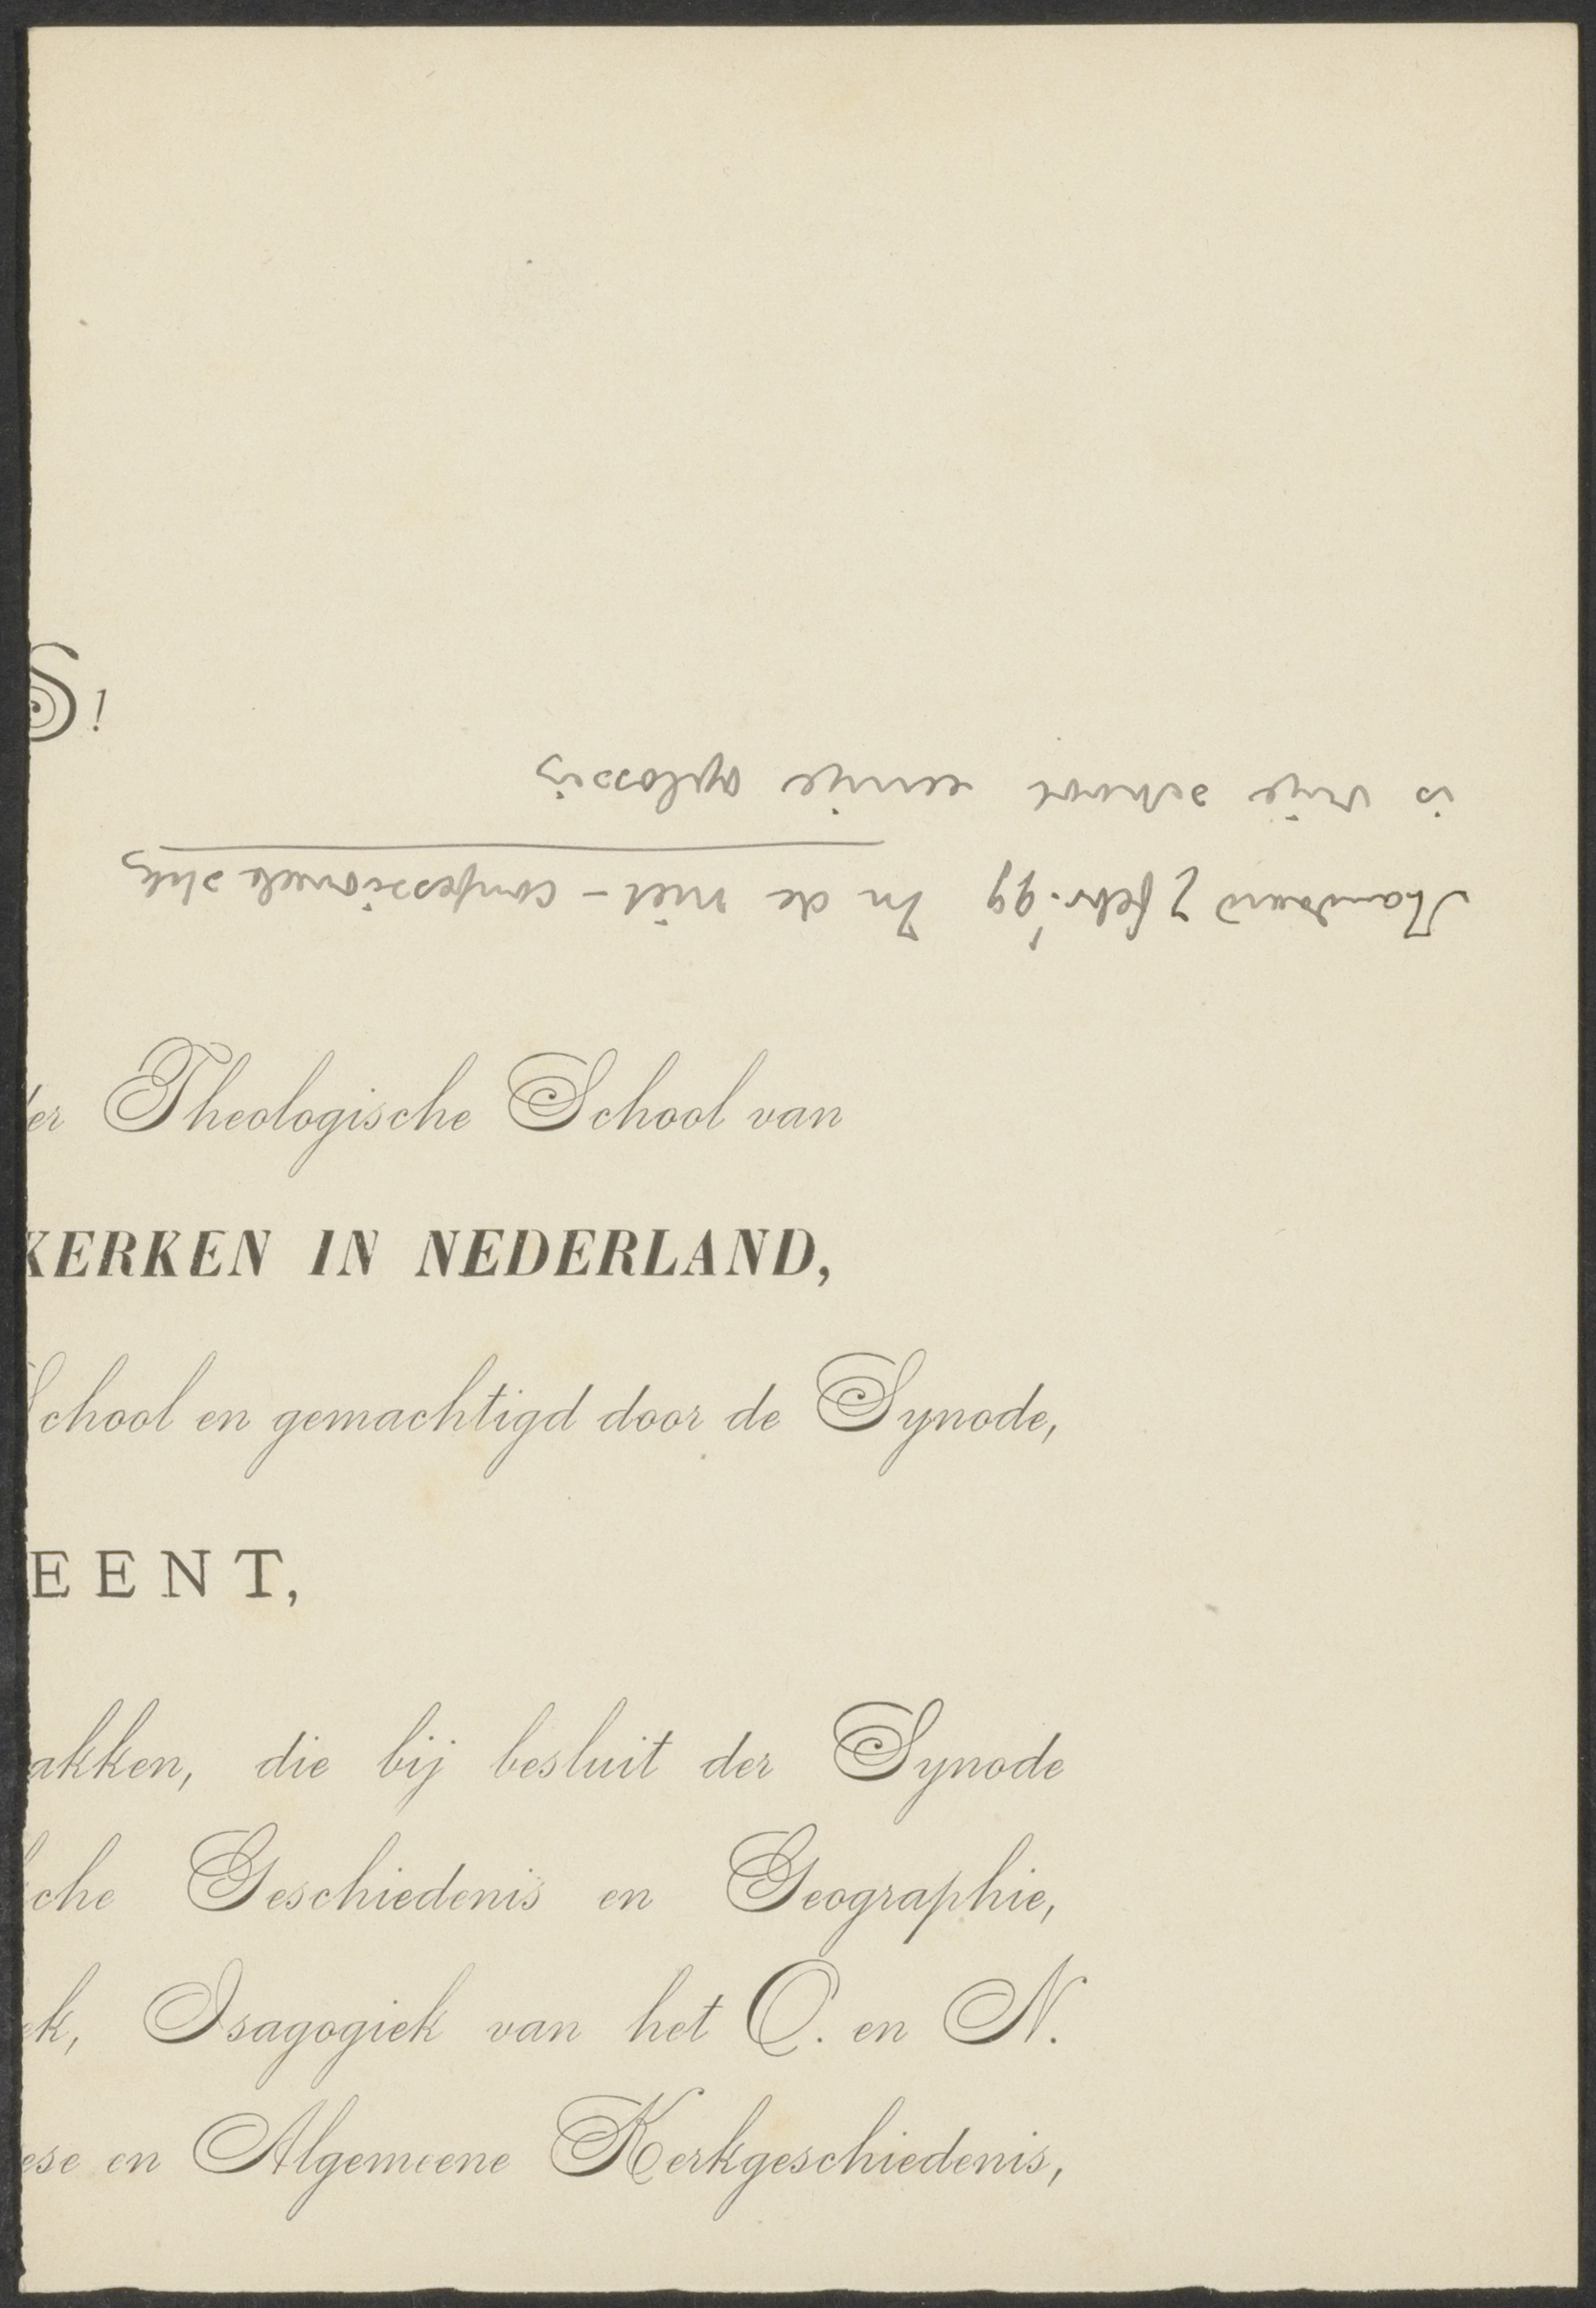 S!
Standaard 7 febr. '99 In de niet-confessioneele
is vrije school eenige oplossing
der Theologische School van
KERKEN IN NEDERLAND,
School en gemachtigd door de Synode,
EENT,
akken, die bij besluit der Synode
sche Geschiedenis en Geographie,
ek, Isagogiek van het O. en N.
ese en Algemeene Kerkgeschiedenis,